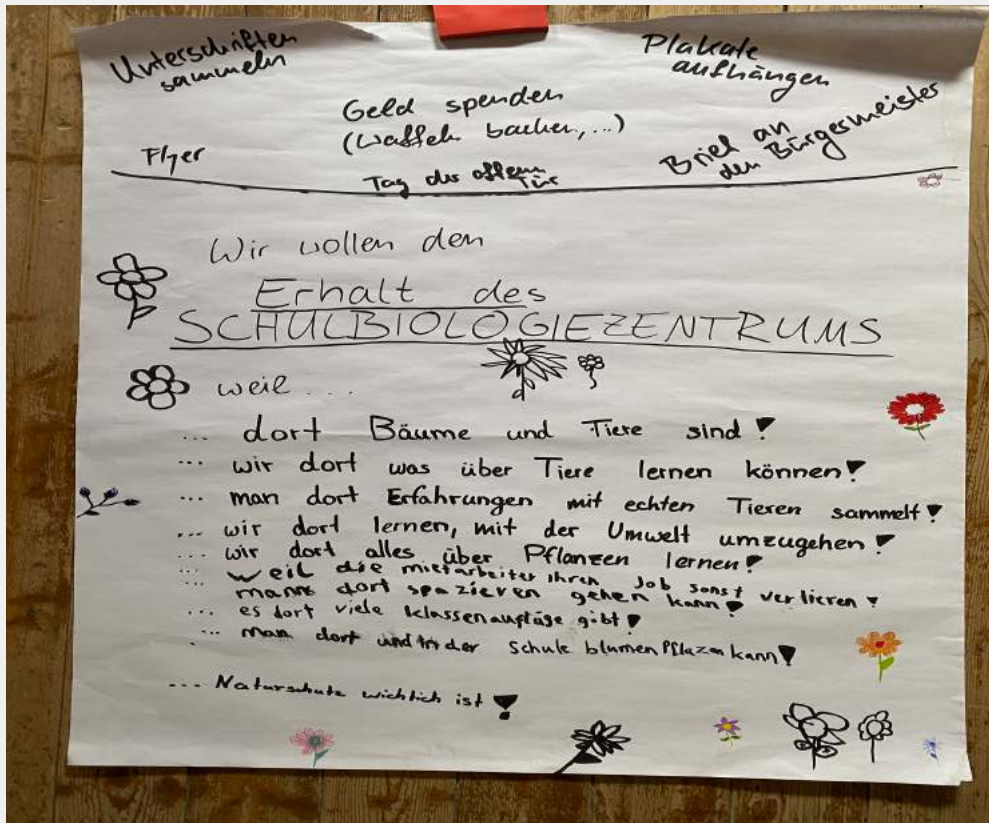 Unterschriften
sammeln
Plakate
aufhängen
Geld spenden
(Waffeln backen,...)
Flyer
Tag der offenen
Tür
Brief an
den Bürgermeister
Wir wollen den
Erhalt des
SCHULBIOLOGIEZENTRUMS
weil...
... dort Bäume und Tiere sind!
... wir dort was über Tiere lernen können!
... man dort Erfahrungen mit echten Tieren sammelt!
... wir dort lernen, mit der Umwelt umzugehen!
... wir dort alles über Pflanzen lernen!
... weil die mietarbeiter ihren Job sonst verlieren!
... mann dort spazieren gehen kann!
... es dort viele klassenaufläge gibt!
... man dort und in der Schule blumen Pflazen kann!
... Naturschutz wichtich ist!